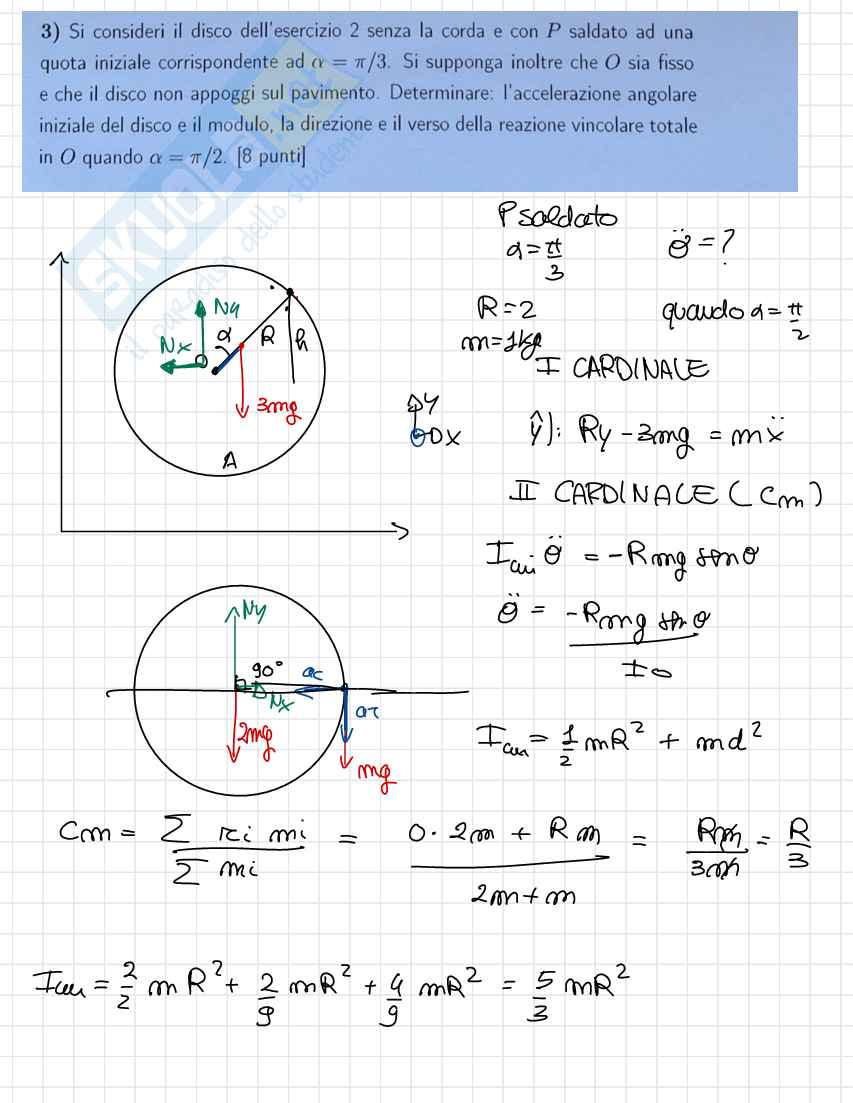 3) Si consideri il disco dell'esercizio 2 senza la corda e con P saldato ad una
quota iniziale corrispondente ad α = π/3. Si supponga inoltre che O sia fisso
e che il disco non appoggi sul pavimento. Determinare: l'accelerazione angolare
iniziale del disco e il modulo, la direzione e il verso della reazione vincolare totale
in O quando α = π/2. [8 punti]
SKUOLA.net
il paradiso dello studente
P saldato
α = π/3
θ̈ = ?
R = 2
m = 1kg
quando α = π/2
Ny
Nx
O
α
R
h
3mg
A
I CARDINALE
Y
X
ŷ): Ry - 3mg = mẍ
II CARDINALE (Cm)
I_cm θ̈ = -Rmg sinθ
θ̈ = -Rmg sinθ / Io
Ny
90°
ac
Nx
aτ
2mg
mg
I_cm = 1/2 mR² + md²
Cm = Σ ri mi / Σ mi = 0·2m + Rm / 2m+m = Rm / 3m = R/3
I_cm = 2/2 mR² + 2/9 mR² + 4/9 mR² = 5/3 mR²